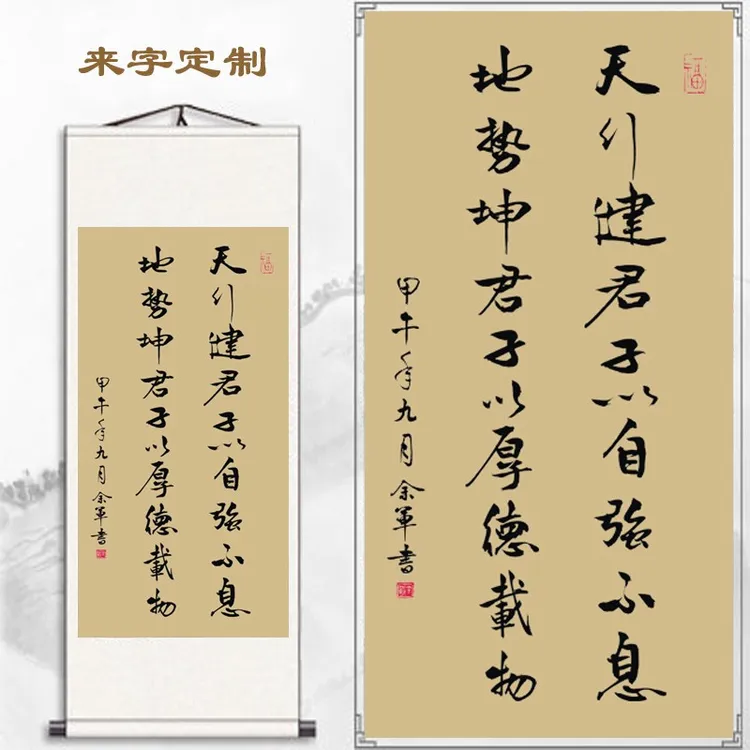 来字定制
天行健君子以自强不息
地势坤君子以厚德載物
甲午年九月余军書
福
天行健君子以自强不息
地势坤君子以厚德載物
甲午年九月余军書
福